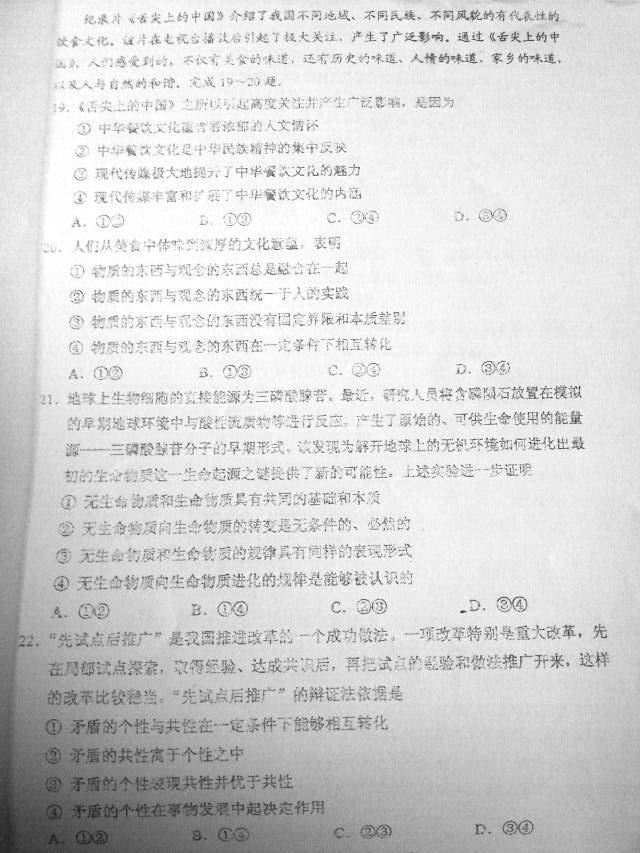 纪录片《舌尖上的中国》介绍了我国不同地域、不同民族、不同风貌的有代表性的
饮食文化。该片在电视台播放后引起了极大关注，产生了广泛影响。通过《舌尖上的中
国》，人们感受到的，不仅有美食的味道，还有历史的味道、人情的味道、家乡的味道，
以及人与自然的和谐。完成 19～20题。
19.《舌尖上的中国》之所以引起高度关注并产生广泛影响，是因为
① 中华餐饮文化蕴含着浓郁的人文情怀
② 中华餐饮文化是中华民族精神的集中反映
③ 现代传媒极大地提升了中华餐饮文化的魅力
④ 现代传媒丰富和扩展了中华餐饮文化的内涵
A．①② B．①③ C．②④ D．③④
20．人们从美食中体味到深厚的文化意蕴，表明
① 物质的东西与观念的东西总是融合在一起
② 物质的东西与观念的东西统一于人的实践
③ 物质的东西与观念的东西没有固定界限和本质差别
④ 物质的东西与观念的东西在一定条件下相互转化
A．①② B．①③ C．②④ D．③④
21．地球上生物细胞的直接能源为三磷酸腺苷。最近，研究人员将含磷陨石放置在模拟
的早期地球环境中与酸性流质物等进行反应，产生了原始的、可供生命使用的能量
源——三磷酸腺苷分子的早期形式。该发现为解开地球上的无机环境如何进化出最
初的生命物质这一生命起源之谜提供了新的可能性。上述实验进一步证明
① 无生命物质和生命物质具有共同的基础和本质
② 无生命物质向生命物质的转变是无条件的、必然的
③ 无生命物质和生命物质的规律具有同样的表现形式
④ 无生命物质向生命物质进化的规律是能够被认识的
A．①② B．①④ C．②③ D．③④
22．“先试点后推广”是我国推进改革的一个成功做法。一项改革特别是重大改革，先
在局部试点探索，取得经验、达成共识后，再把试点的经验和做法推广开来，这样
的改革比较稳当。“先试点后推广”的辩证法依据是
① 矛盾的个性与共性在一定条件下能够相互转化
② 矛盾的共性寓于个性之中
③ 矛盾的个性表现共性并优于共性
④ 矛盾的个性在事物发展中起决定作用
A．①② B．①④ C．②③ D．③④